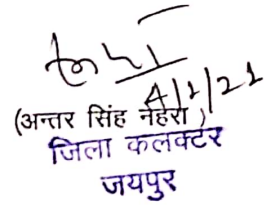 4/1/21
(अन्तर सिंह नेहरा)
जिला कलक्टर
जयपुर